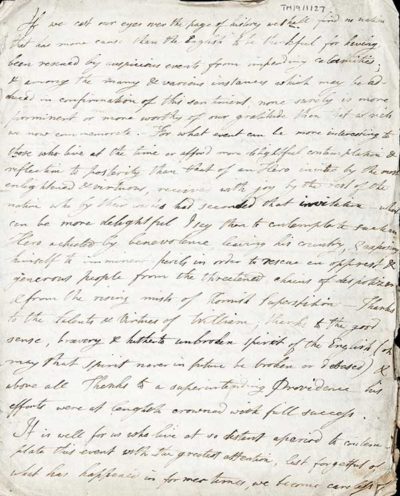 TM19/1127
If we cast our eyes over the page of history we shall find no nation
that has more cause than the English to be thankful for having
been rescued by auspicious events from impending calamities;
& among the many & various instances which may be ad
duced in confirmation of this sentiment none surely is more
prominent or more worthy of our gratitude than that which
we now commemorate. For what event can be more interesting to
those who live at the time or afford more delightful contemplation &
reflection to posterity than that of an Hero invited by the most
enlightened & virtuous, received with joy by the rest of the
nation who by their had seconded that invitation what
can be more delightful I say than to contemplate such an
Hero actuated by benevolence leaving his country, & exposing
himself to imminent perils in order to rescue an opprest &
generous people from the threatened chains of despotism
& from the rising mists of Romish superstition. Thanks
to the talents & virtues of William, thanks to the good
sense, bravery & hitherto unbroken spirit of the English (oh
may that spirit never in future be broken or debased) &
above all Thanks to a superintending Providence his
efforts were at length crowned with full success.
It is well for us who live at so distant a period to contem
plate this event with the greatest attention, lest forgetful of
what has happened in former times, we become careless &